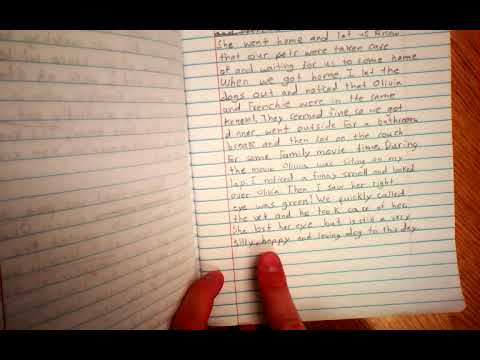 She went home and let us know
that our pets were taken care
of and waiting for us to come home
When we got home, I let the
dogs out and noticed that Olivia
and Frenchie were in the same
Kennel. They seemed fine, so we got
dinner, went outside for a bathroom
break and then sat on the couch
for some family movie time. During
the movie Olivia was siting on my
lap. I noticed a funny smell and looked
over Olivia. Then I saw her right
eye was green! We quickly called
the vet and he took care of her.
She lost her eye but is still a very
silly, happy and loving dog to this day.